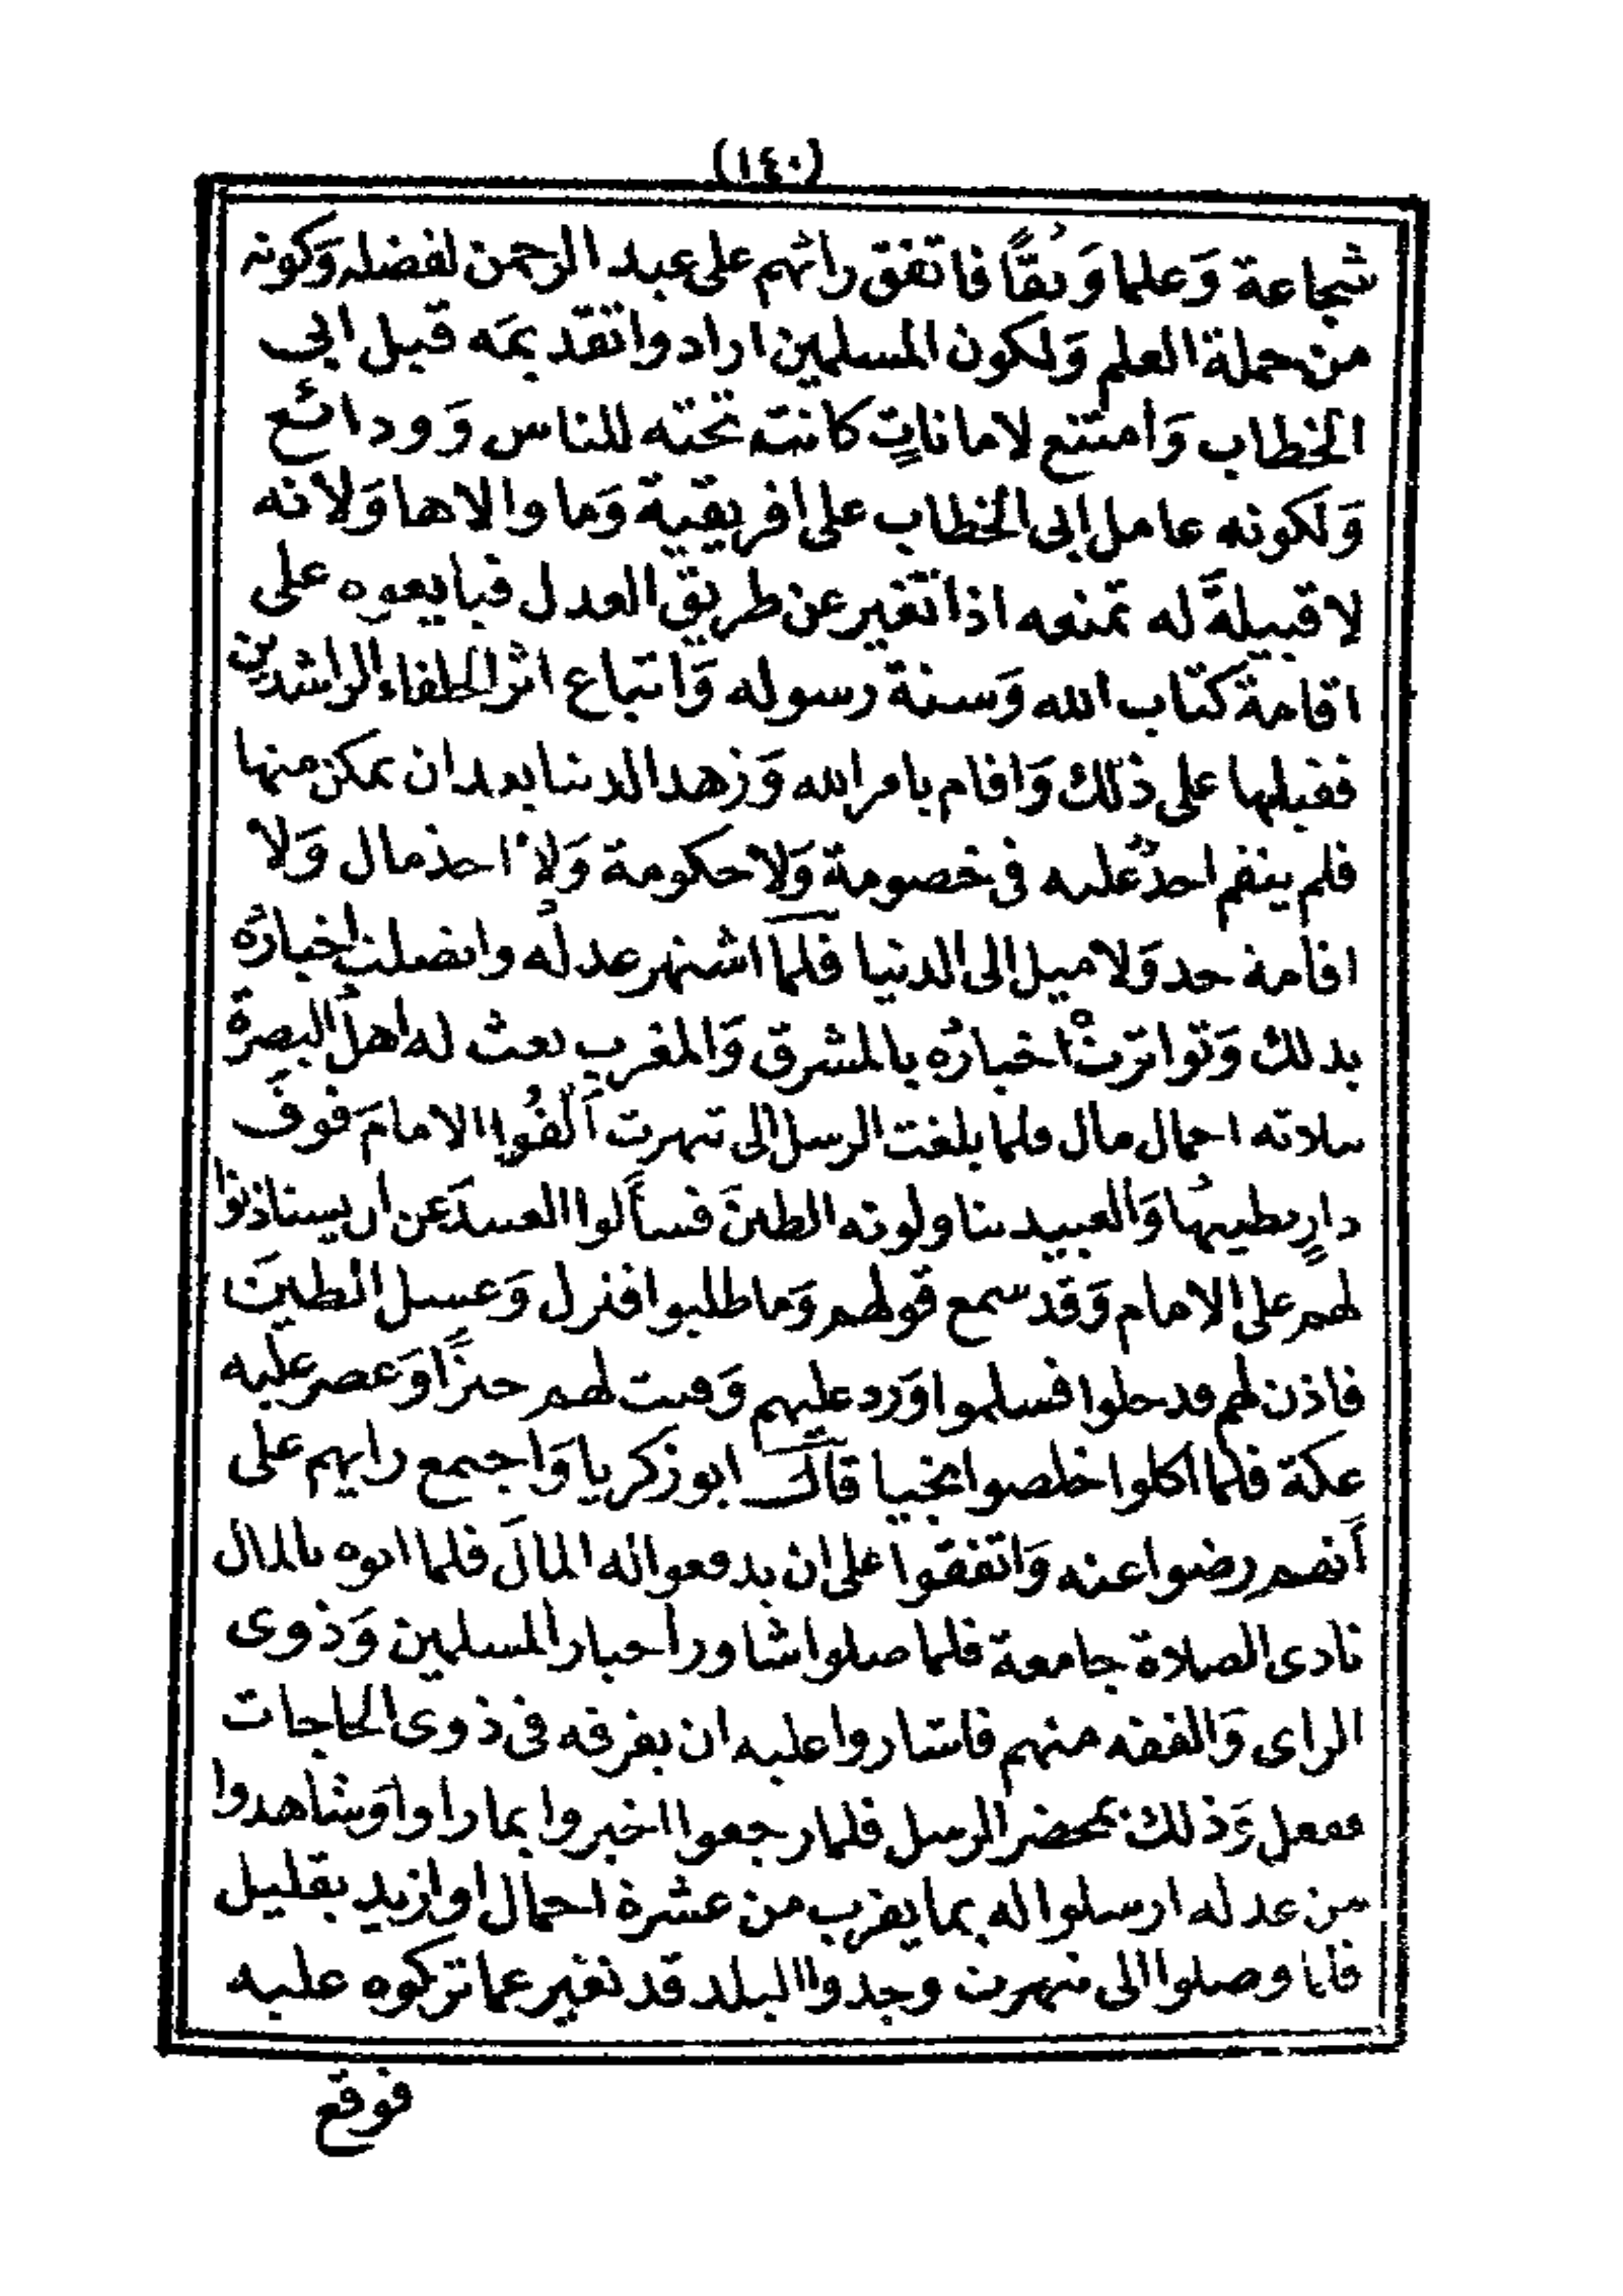 (١٤٠)
شجاعة وَعلما وَتُقًّا فاتفق رائهم على عبد الرحمن لفضله وَكونه
من حملة العلم وَلكون المسلمين ارادوا تقديمَه قبل ابي
الخطاب وَامتنع لاماناتٍ كانت تحته للناس وَودائع
وَلكونه عامل ابى الخطاب على افريقية وَما والاها وَلانه
لا قبيلةَ له تمنعه اذا تغير عن طريق العدل فبايعوه على
اقامة كتاب الله وَسنة رسوله وَاتباع اثر الخلفاء الراشدين
فقبلها على ذلك وَاقام بامر الله وَزهد الدنيا بعد ان تمكن منها
فلم ينقم احدٌ عليه فى خصومة وَلا حكومة وَلا اخذ مال وَلا
اقامة حد وَلا ميل الى الدنيا فلمّا اشتهر عدلُه واتصلت اخبارُه
بذلك وَتواترتْ اخبارُه بالمشرق وَالمغرب بعث له اهلُ البصرة
ثلاثه احمال مال فلما بلغت الرسل الى تيهرت اَلْفُوا الامامَ فوقَ
دارٍ يطينُها وَالعبيد يناولونه الطينَ فسألوا العبيدَ عن ان يستاذنوا
لهم على الامام وَقد سمع قولهم وَما طلبوا فنزل وَغسل الطينَ
فاذن لهم فدخلوا فسلموا وَرد عليهم وَفت لهم خبزًا وَعصر عليه
عكة فلما اكلوا خلصوا نجيا قال ابو زكريا وَاجتمع رايهم على
أنهم رضوا عنه وَاتفقوا على ان يدفعوا له المالَ فلما اتوه بالمال
نادى الصلاة جامعة فلما صلوا شاور احبار المسلمين وَذوى
الراى وَالفقه منهم فاشاروا عليه ان يفرقه فى ذوى الحاجات
ففعل وَذلك بمحضر الرسل فلما رجعوا اخبروا بما راوا وَشاهدوا
من عدله ارسلوا له بما يقرب من عشرة احمال او ازيد بقليل
فلما وصلوا الى تيهرت وجدوا البلد قد تغير عما تركوه عليه
فوقع